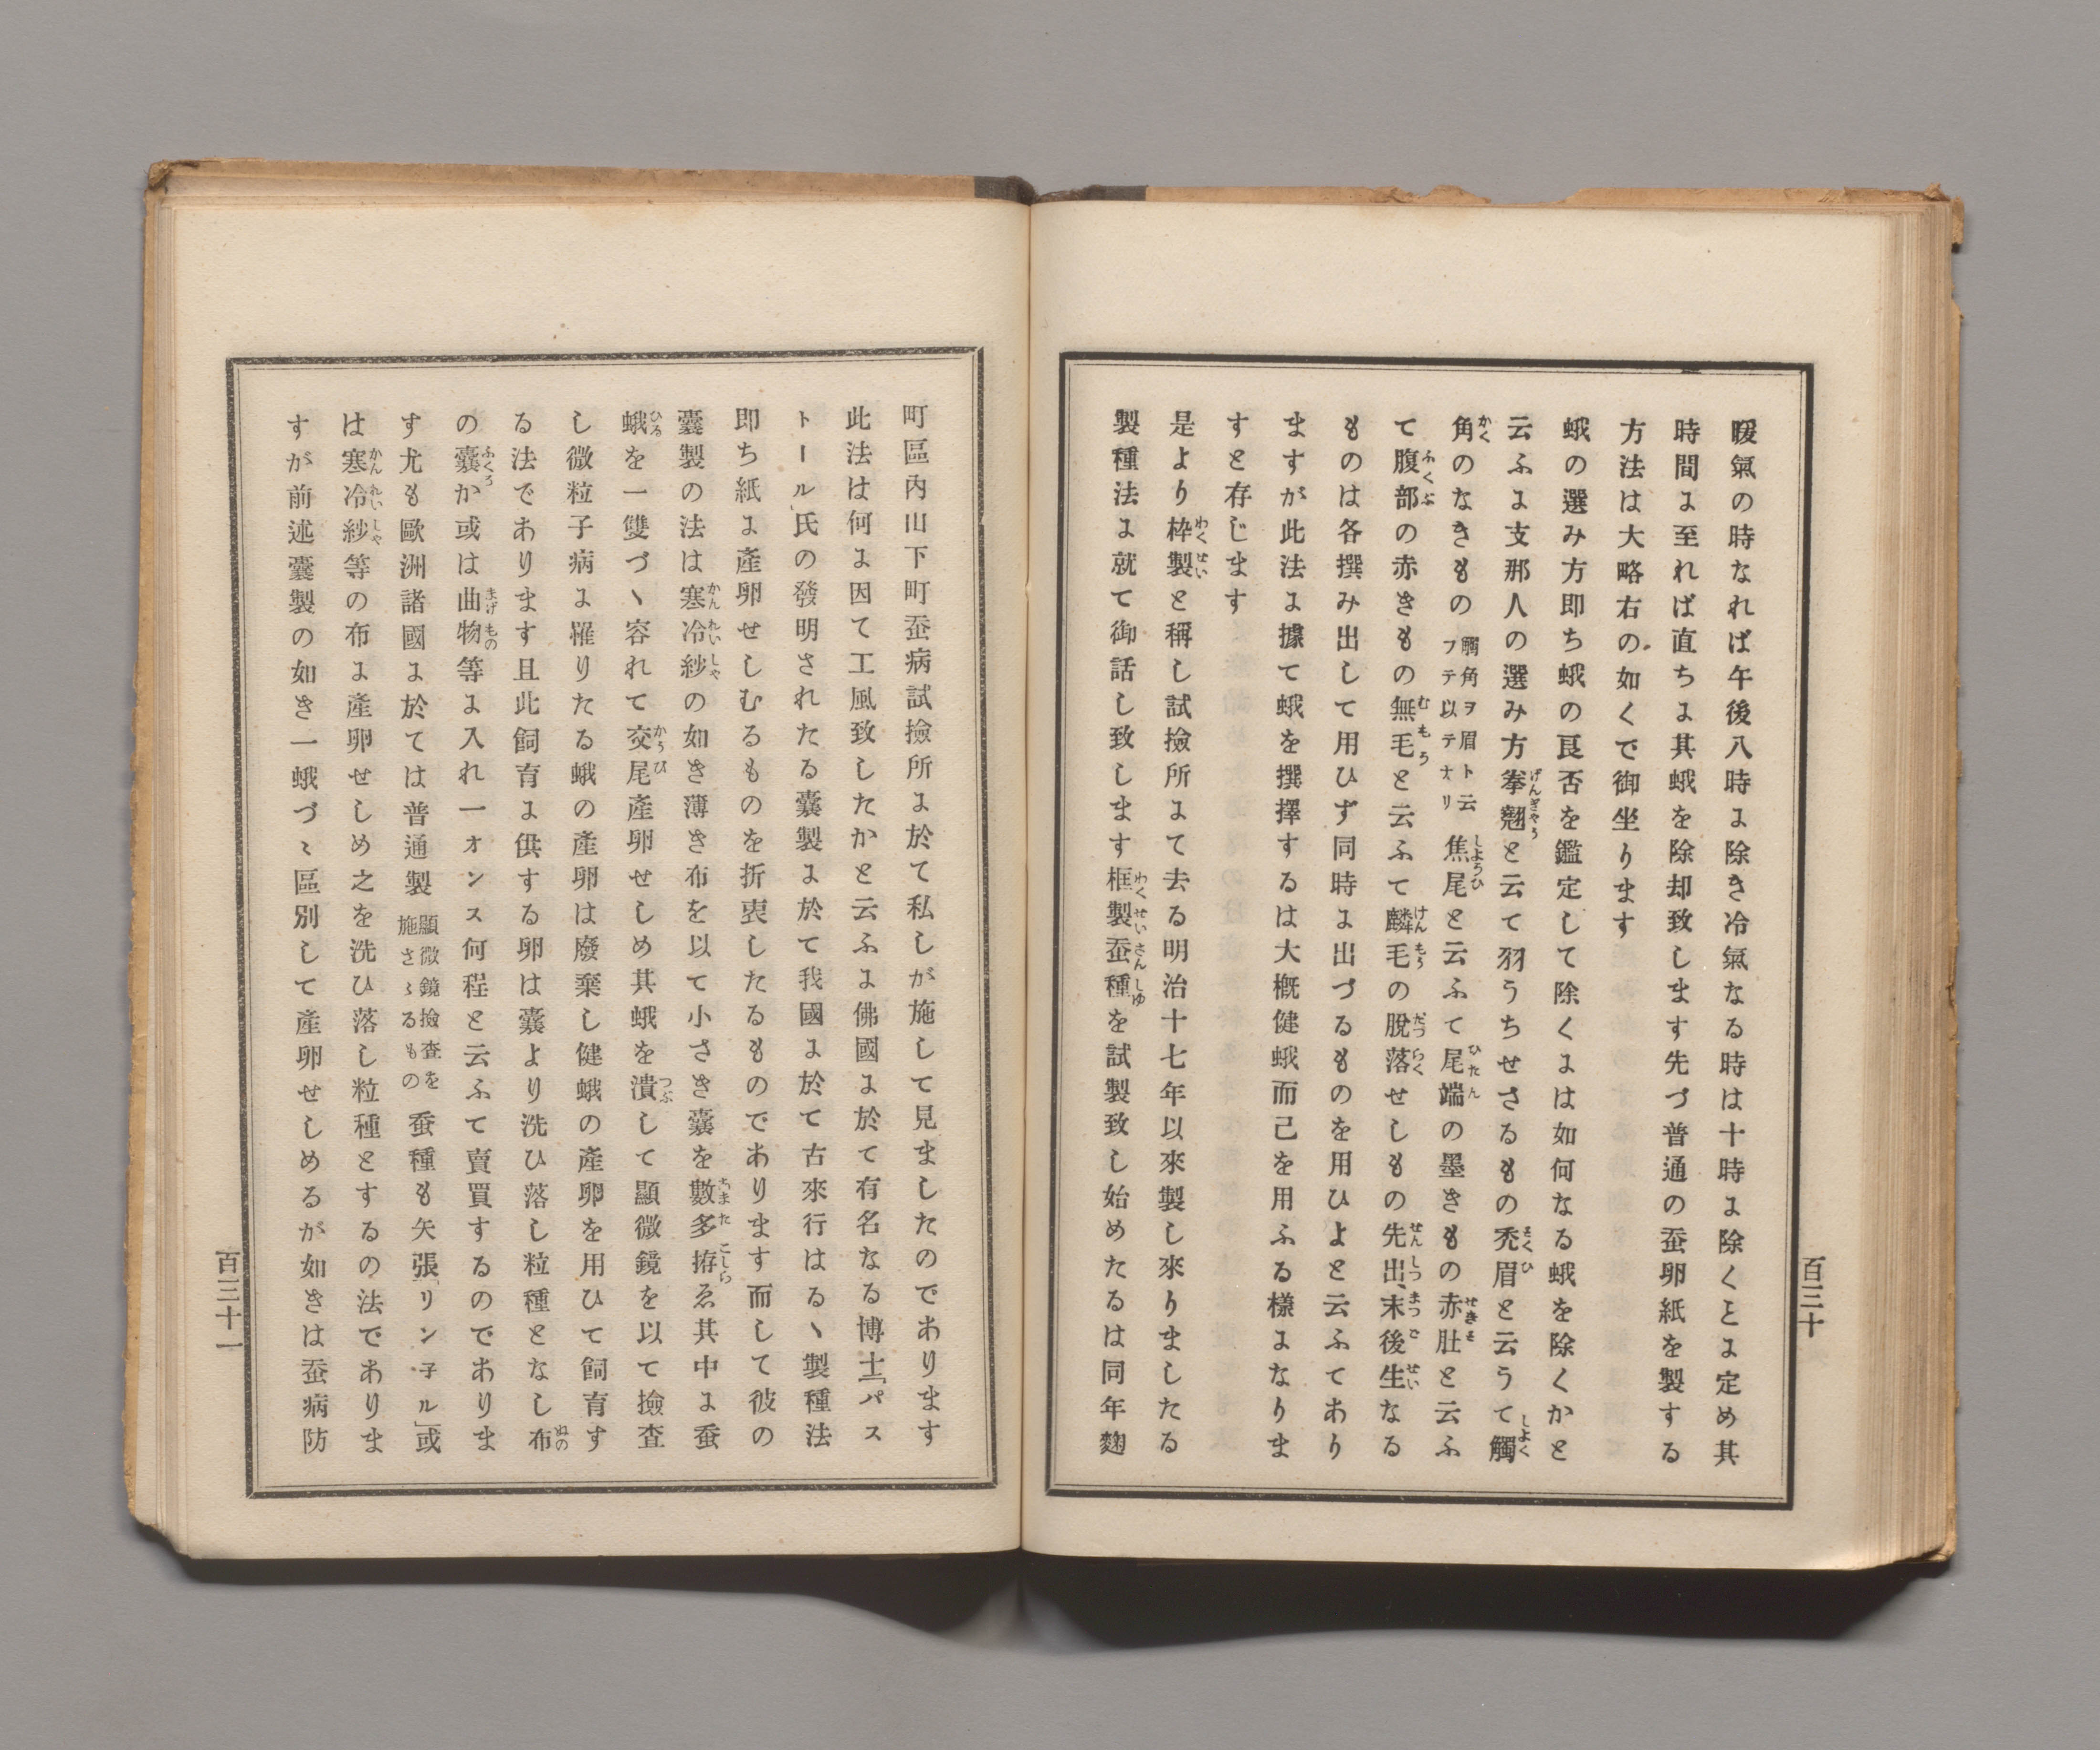 暖氣の時なれば午後八時に除き冷氣なる時は十時に除くヿに定め其
時間に至れば直ちに其蛾を除却致します先づ普通の蚕卵紙を製する
方法は大略右の如くで御坐ります
蛾の選み方即ち蛾の良否を鑑定して除くには如何なる蛾を除くかと
云ふに支那人の選み方拳翹と云て羽うちせさるもの禿眉と云うて觸
角のなきもの觸角ヲ眉ト云フテ以テナリ焦尾と云ふて尾端の墨きもの赤肚と云ふ
て腹部の赤きもの無毛と云ふて麟毛の脫落せしもの先出、末後生なる
ものは各撰み出して用ひず同時に出づるものを用ひよと云ふてあり
ますが此法に據て蛾を撰擇するは大概健蛾而己を用ふる樣になりま
すと存じます
是より枠製と稱し試撿所にて去る明治十七年以來製し來りましたる
製種法に就て御話し致します框製蚕種を試製致し始めたるは同年麴
百三十
町區內山下町蚕病試撿所に於て私しが施して見ましたのであります
此法は何に因て工風致したかと云ふに佛國に於て有名なる博士「パス
トール」氏の發明されたる囊製に於て我國に於て古來行はるヽ製種法
即ち紙に產卵せしむるものを折衷したるものであります而して彼の
囊製の法は寒冷紗の如き薄き布を以て小さき囊を數多拵ゑ其中に蚕
蛾を一雙づヽ容れて交尾產卵せしめ其蛾を潰して顯微鏡を以て撿査
し微粒子病に罹りたる蛾の產卵は廢棄し健蛾の產卵を用ひて飼育す
る法であります且此飼育に供する卵は囊より洗ひ落し粒種となし布
の囊か或は曲物等に入れ一オンス何程と云ふて賣買するのでありま
す尤も歐洲諸國に於ては普通製顯微鏡撿査を施さゝるもの蚕種も矢張「リン子ル」或
は寒冷紗等の布に產卵せしめ之を洗ひ落し粒種とするの法でありま
すが前述囊製の如き一蛾づゝ區別して產卵せしめるが如きは蚕病防
百三十一